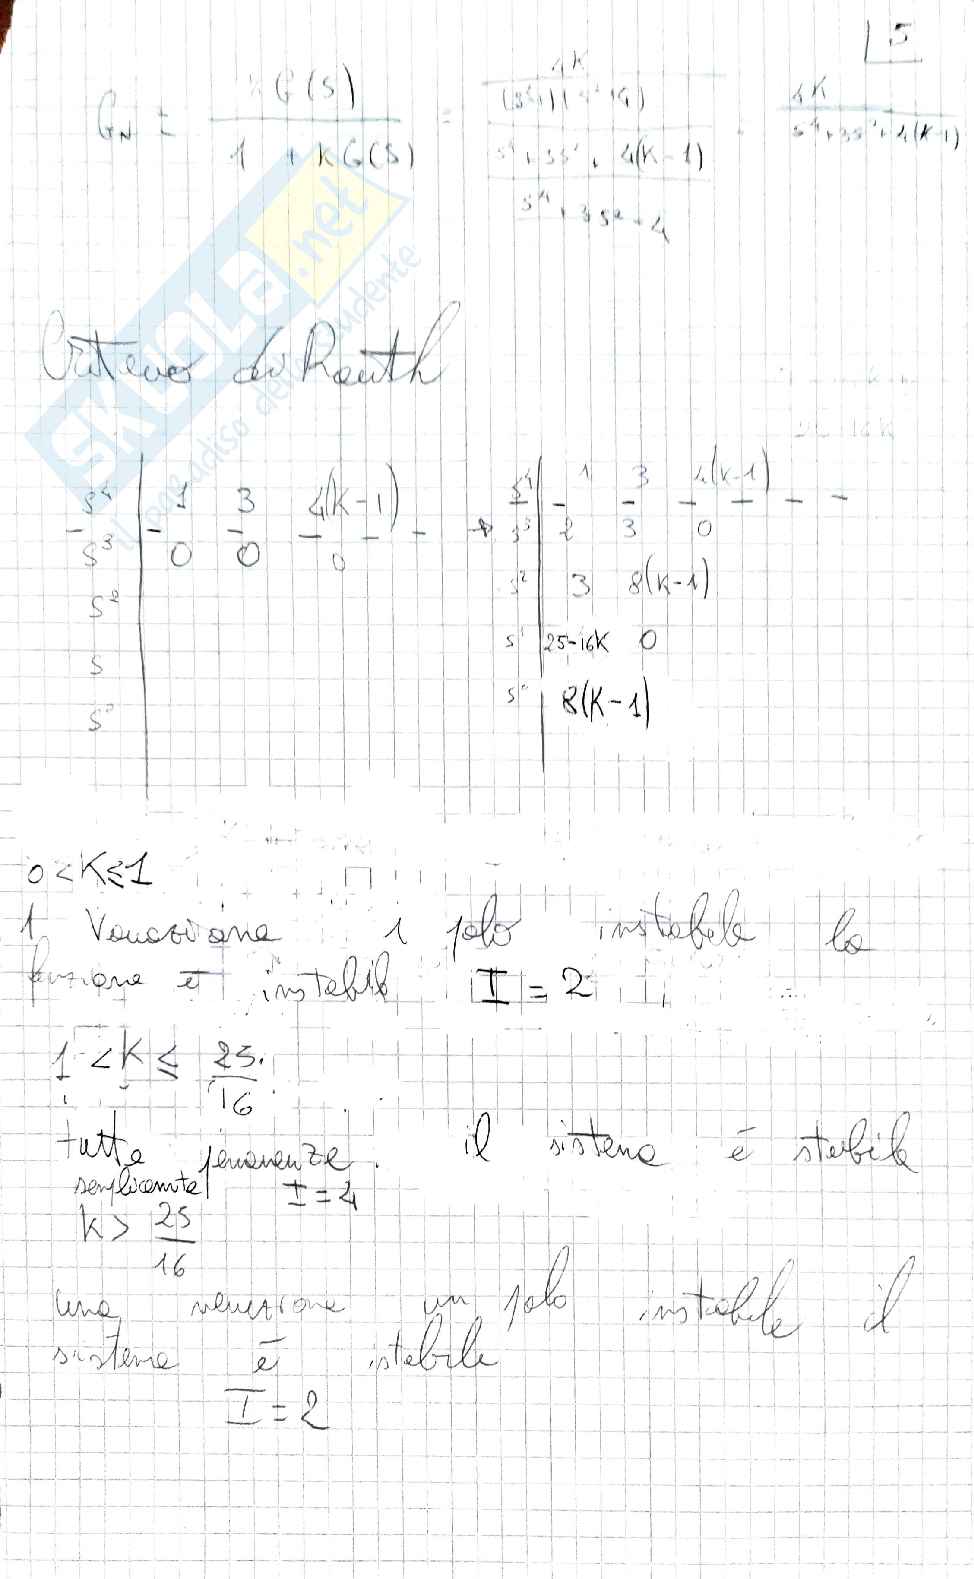 5
G_N = KG(S) / 1 + KG(S) = 4K / (s²-1)(s²+4) / s⁴+3s²+4(K-1) / s⁴+3s²-4 = 4K / s⁴+3s²+4(K-1)
SKUOLA.net
il paradiso dello studente
Criterio di Routh
s⁴ 1 3 4(K-1) → s⁴ 1 3 4(K-1)
s³ 0 0 0 s³ 2 3 0
s² s² 3 8(K-1)
s s¹ 25-16K 0
s⁰ s⁰ 8(K-1)
0<K≤1
1 Variazione 1 polo instabile la
funzione è instabile I=2
1<K≤ 25/16
tutte permanenze. il sistema è stabile
semplicemente I=4
K> 25/16
una variazione un polo instabile il
sistema è istabile
I=2